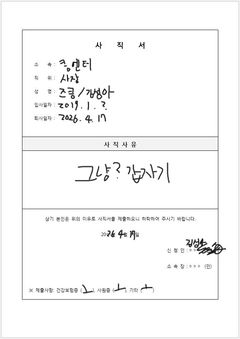 사 직 서
소 속 : 킹센터
직 위 : 사장
성 명 : 즈롱/김영아
입사일자 : 2019. 1. 2.
퇴사일자 : 2026. 4. 17
사 직 사 유
그냥? 갑자기
상기 본인은 위의 이유로 사직서를 제출하오니 허락하여 주시기 바랍니다.
2026년 4월 17일
신 청 인 :
소 속 장 : ○ ○ ○ (인)
※ 제출사항: 건강보험증 ( ), 사원증 ( ), 기타 ( )